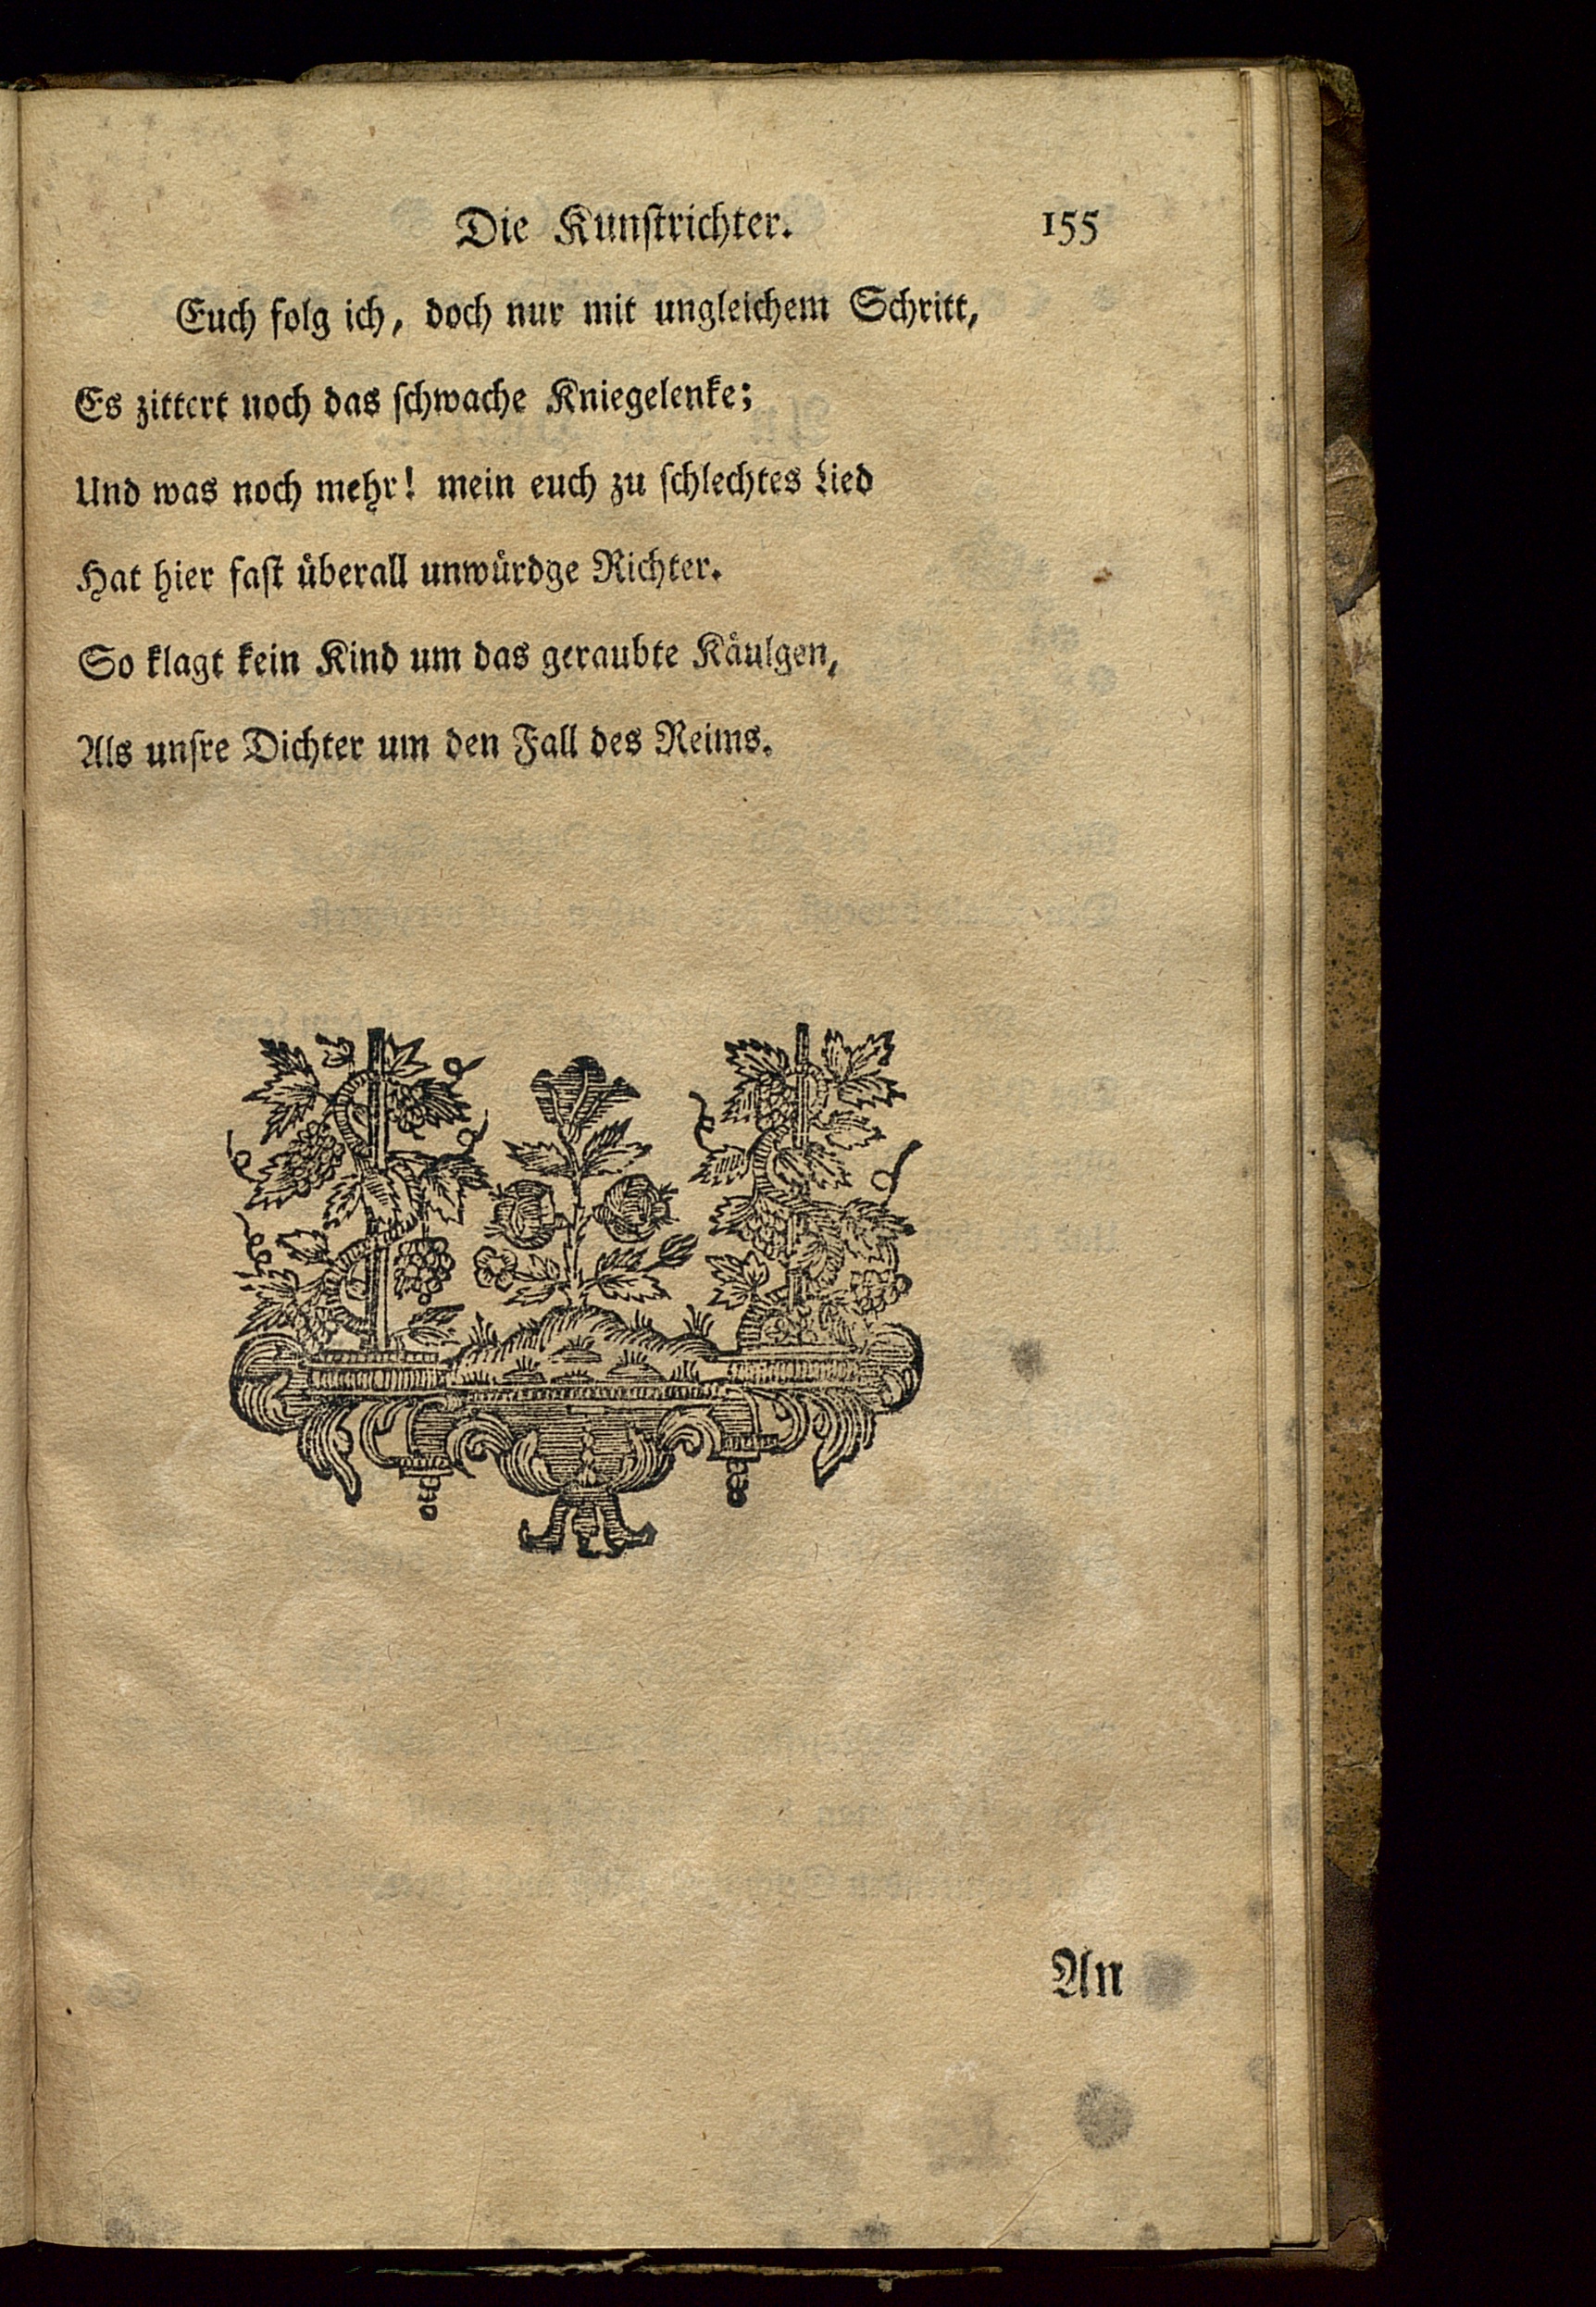 Die Kunſtrichter. 155
Euch folg ich, doch nur mit ungleichem Schritt,
Es zittert noch das ſchwache Kniegelenke;
Und was noch mehr! mein euch zu ſchlechtes Lied
Hat hier faſt uͤberall unwuͤrdge Richter.
So klagt kein Kind um das geraubte Kaͤulgen,
Als unſre Dichter um den Fall des Reims.
An